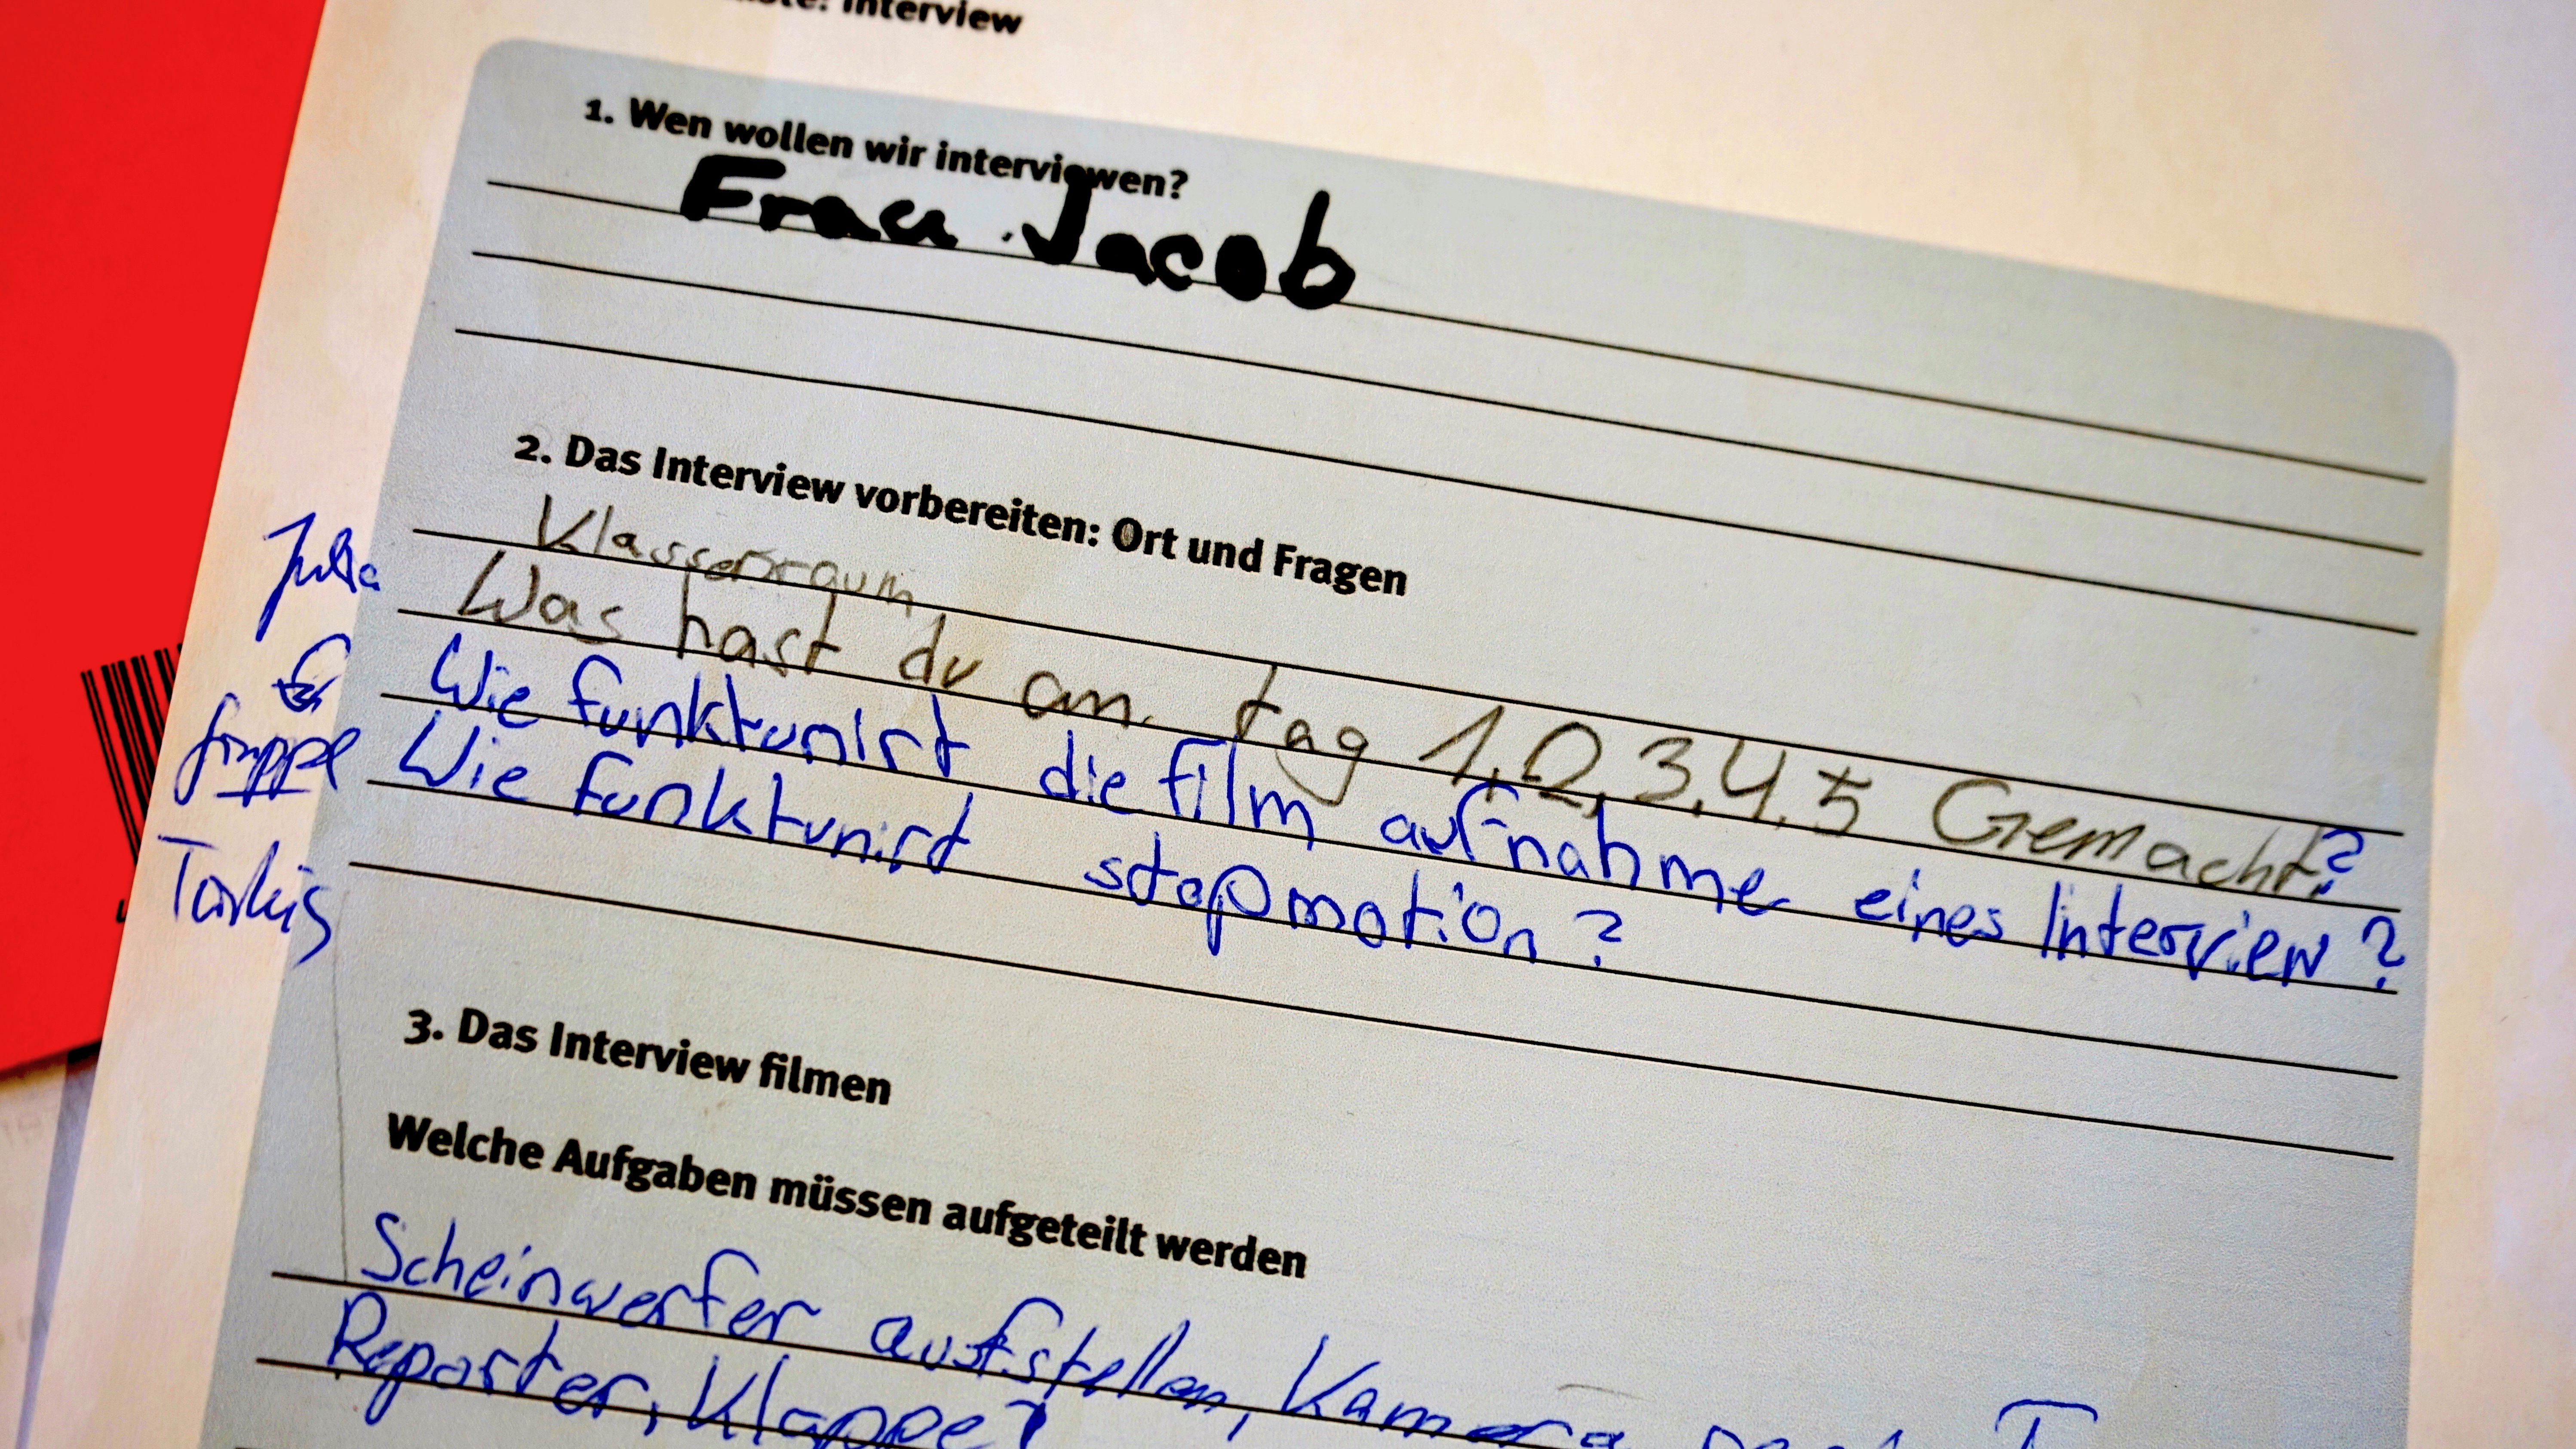 Interview
1. Wen wollen wir interviewen?
Frau Jacob
2. Das Interview vorbereiten: Ort und Fragen
Klassenraum
Was hast du an tag 1,2,3,4,5 Gemacht?
Julia
Wie funktunirt die film aufnahme eines Interview?
gruppe
Wie funktunirt stopmotion?
3. Das Interview filmen
Welche Aufgaben müssen aufgeteilt werden
Scheinwerfer aufstellen, Kamera
Reporter, Klappe